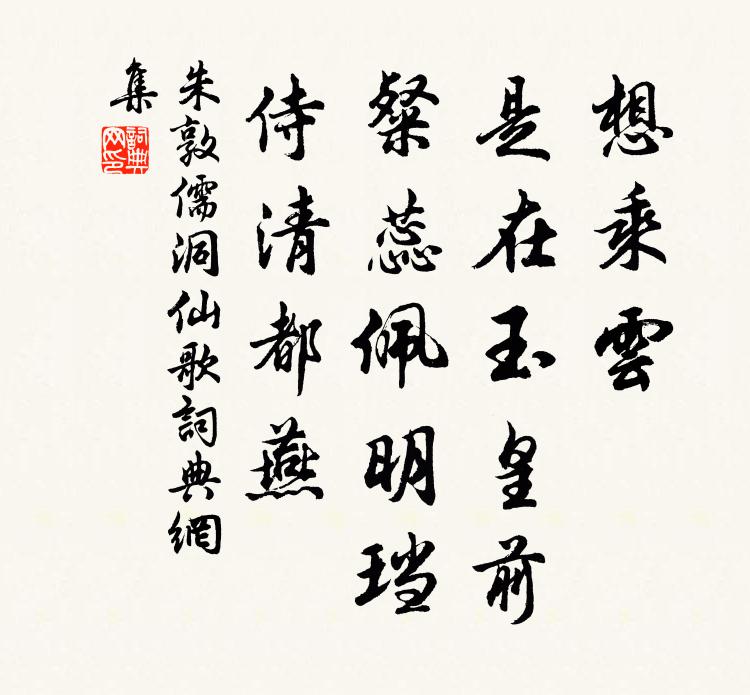 想乘雲
是在玉皇前
粲蕊佩明珰
侍清都燕
朱敦儒洞仙歌詞典網
集
詞典網印